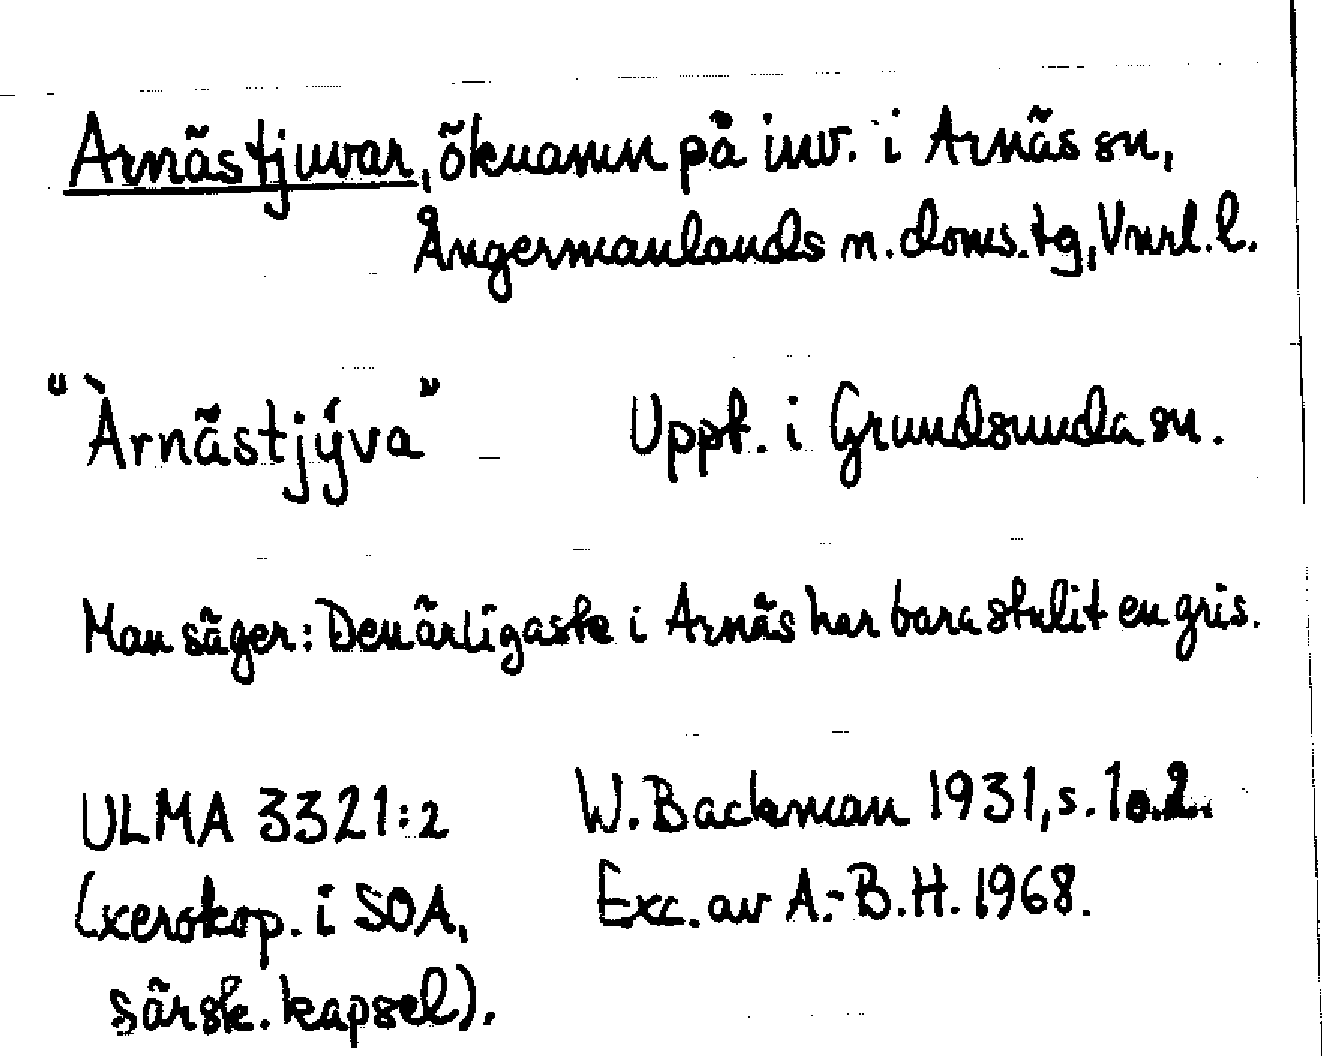 Arnästjuvar, öknamn på inv. i Arnäs sn,
Ångermanlands n. doms. tg, Vnrl. l.
"Àrnästjýva" Uppt. i Grundsunda sn.
Man säger: Den ärligaste i Arnäs har bara stulit en gris.
ULMA 3321:2 W. Backman 1931, s. 1 o. 2.
(xerokop. i SOA, Exc. av A.-B.H. 1968.
särsk. kapsel).